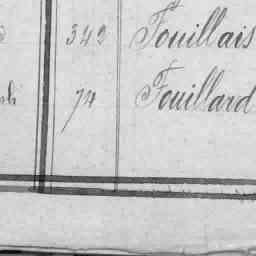 342 Fouillais
74 Fouillard